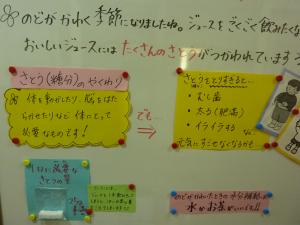 のどがかわく季節になりましたね。ジュースをごくごく飲みたくな
おいしいジュースにはたくさんのさとうがつかわれています
さとう(糖分)のやくわり
体を動かしたり、脳をはた
らかせたりなど体にとって
必要なものです!
でも…
⇒
さとうをとりすぎると…
・むし歯
・太る(肥満)
・イライラする など
元気にすごせなくなるかも
1日に必要な
さとうの量
のどがかわいたときの水分補給は
水かお茶がいいです!!